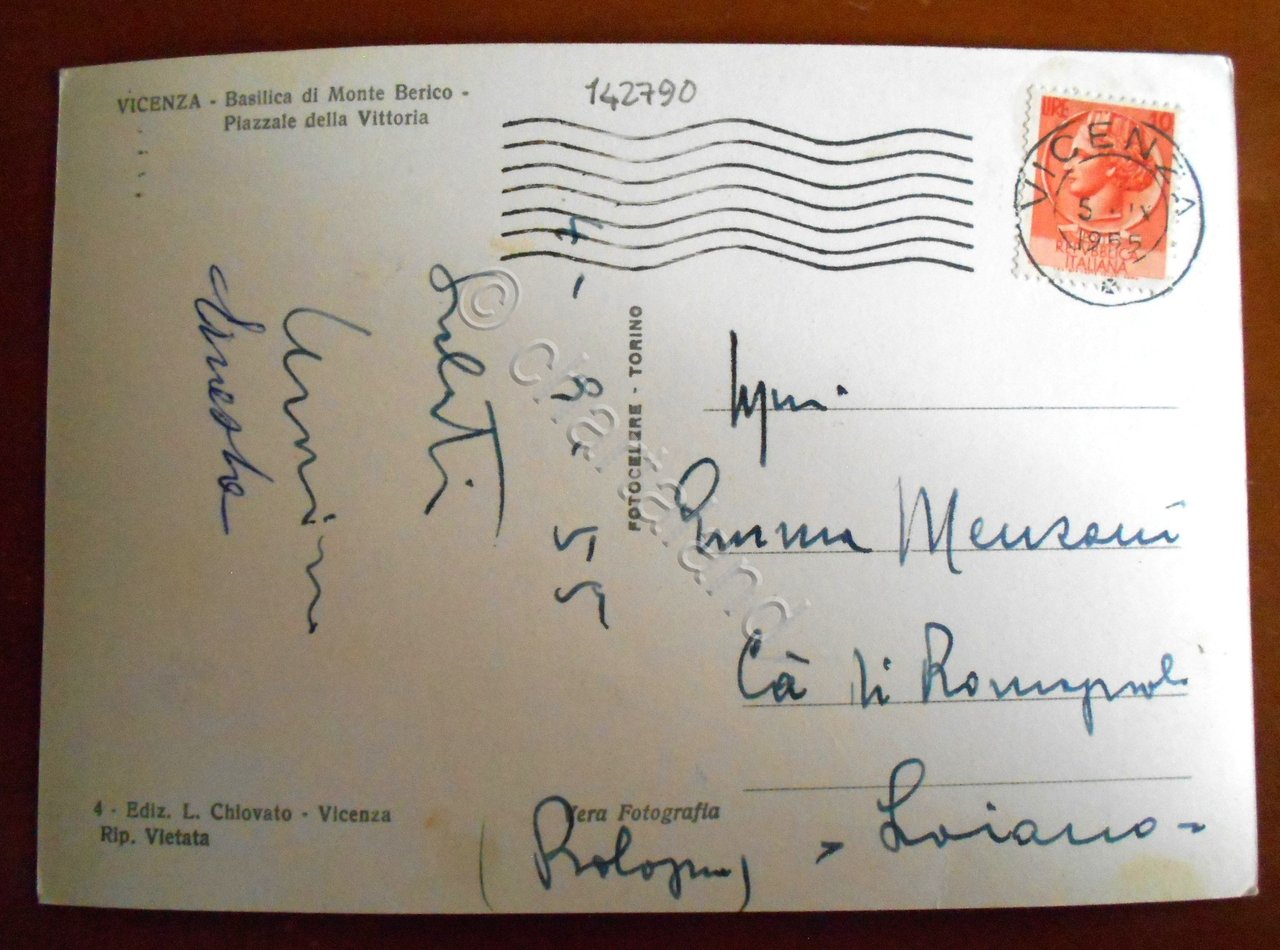 VICENZA - Basilica di Monte Berico -
Piazzale della Vittoria
142790
LIRE 10
REPUBBLICA
ITALIANA
VICENZA
5 - IX
1955
Saluti
Ernesta
FOTOCELERE - TORINO
© chartaland
Emma Menzoni
Cà di Romagnoli
Loiano -
(Bologna)
4 - Ediz. L. Chiovato - Vicenza
Rip. Vietata
Vera Fotografia